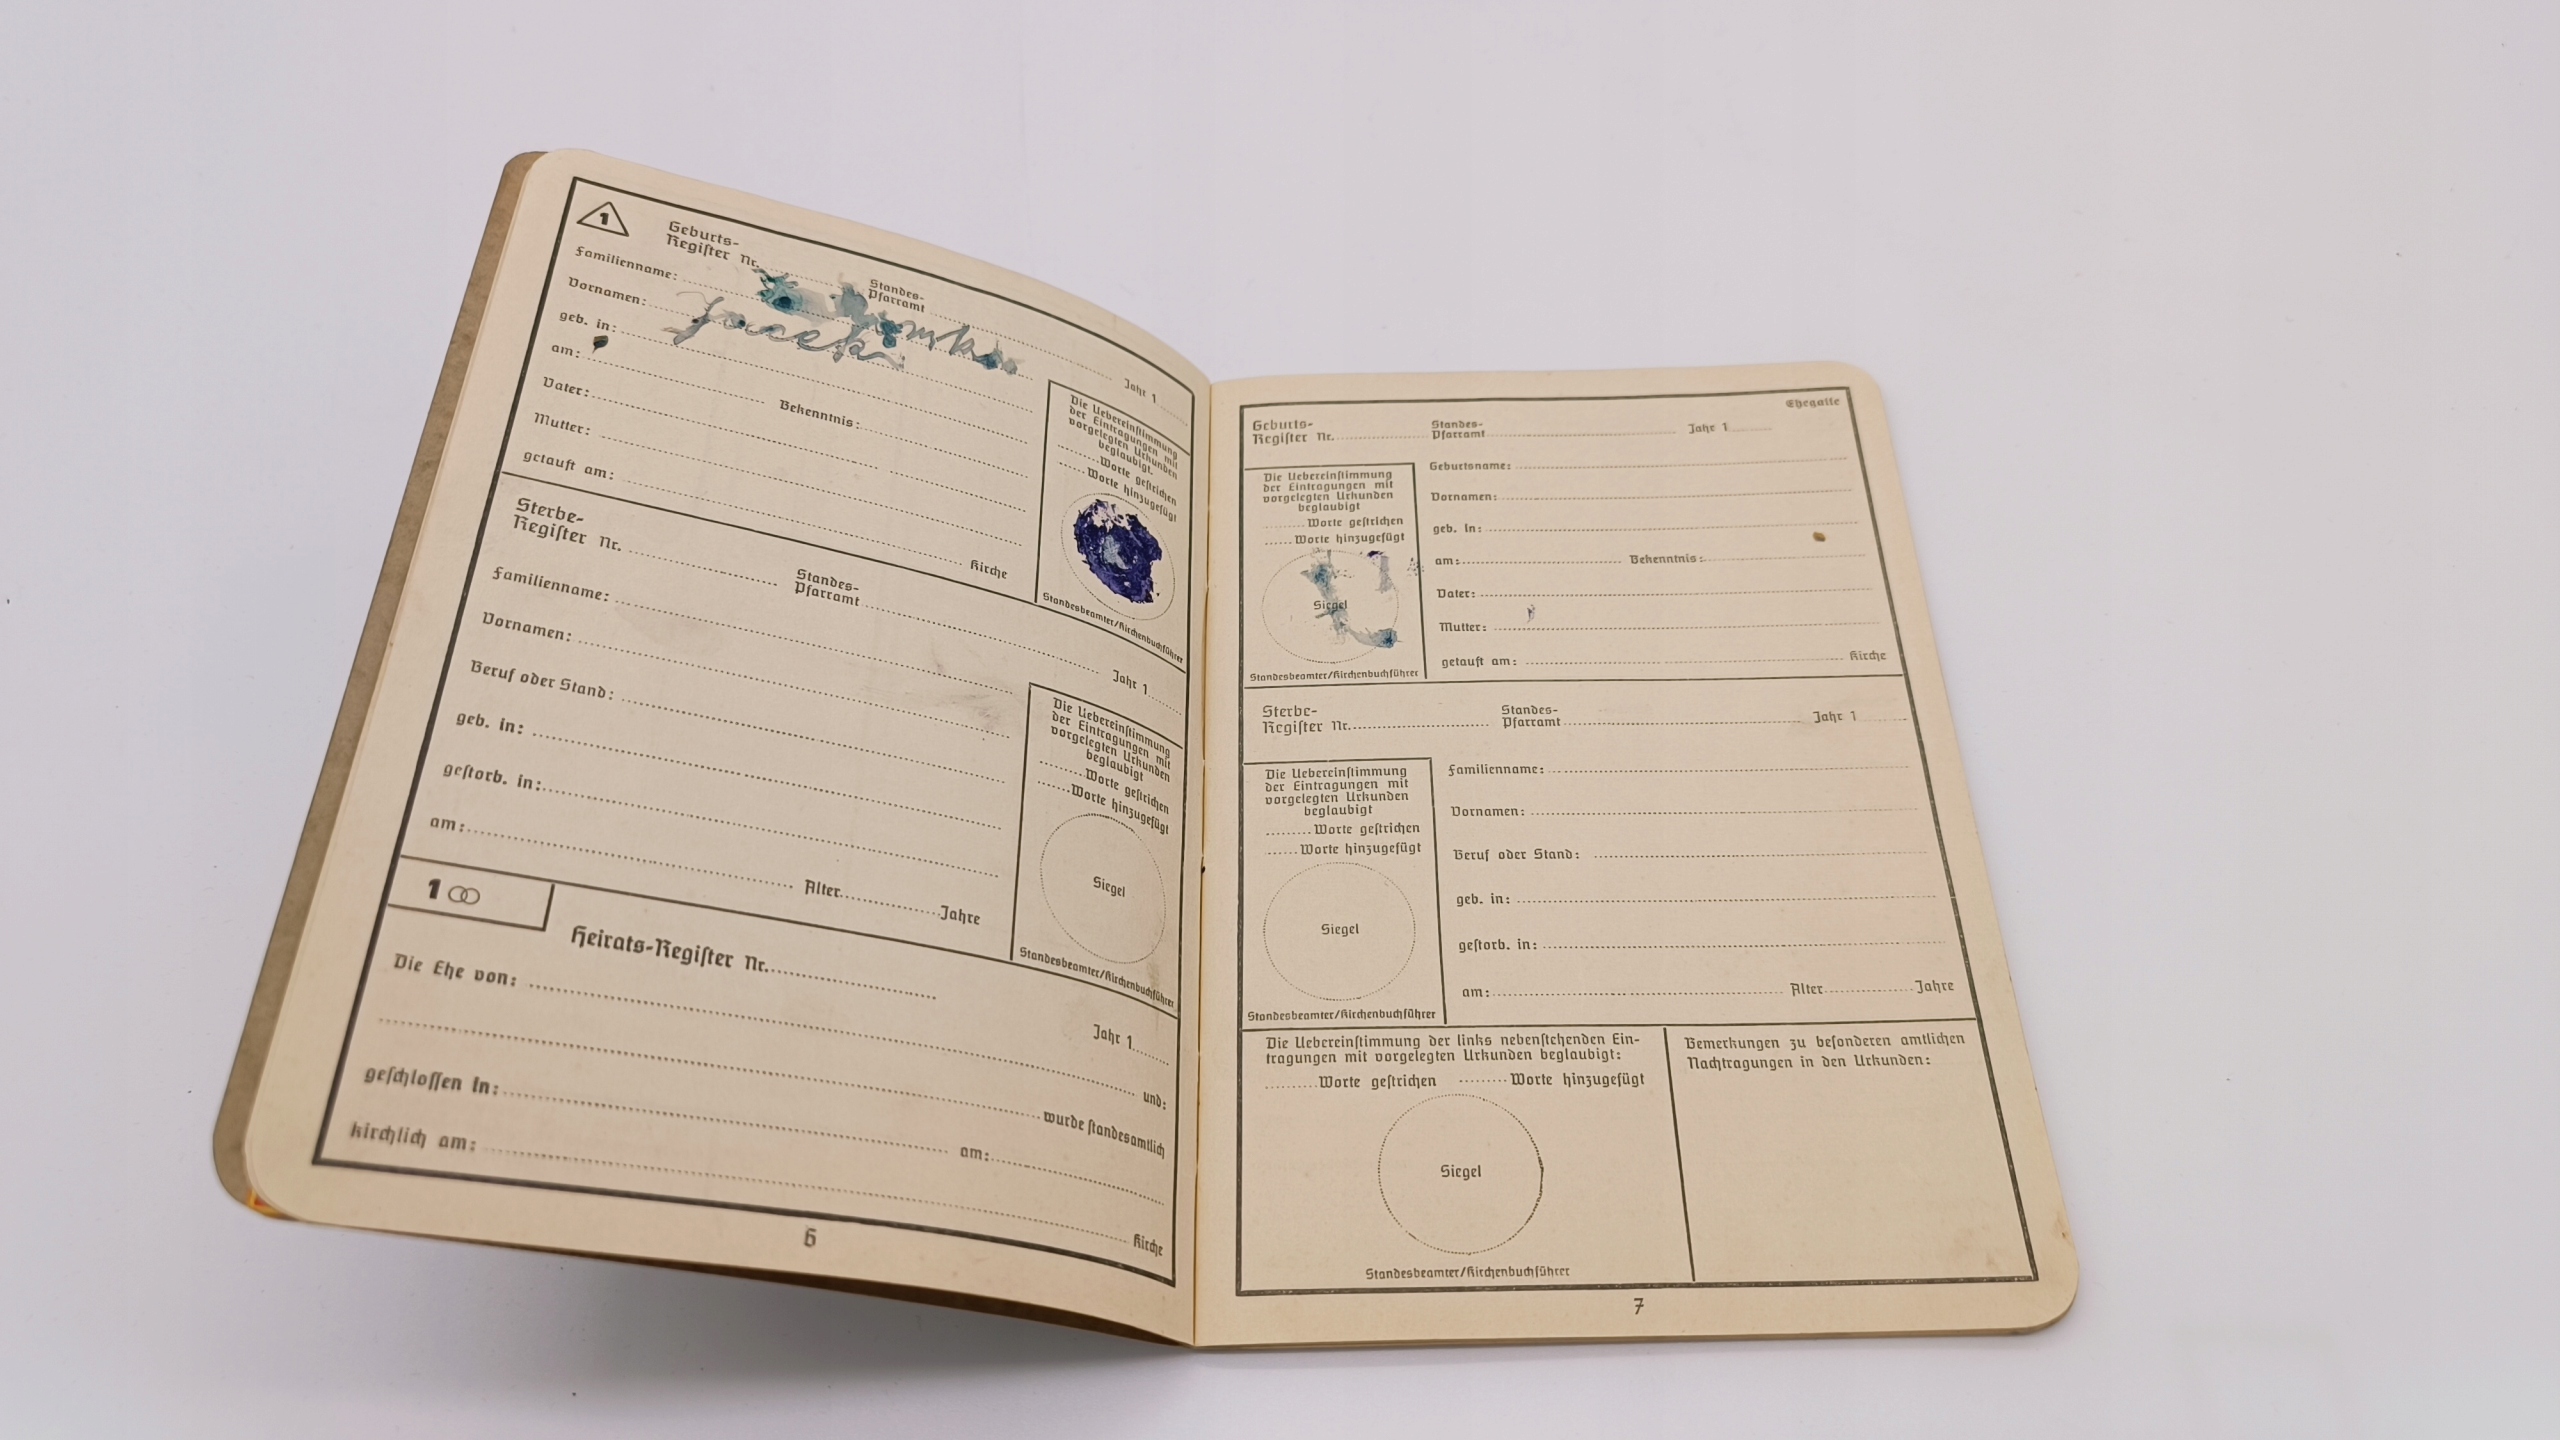 1
Geburts-
Regiſter Nr. Standes-
Pfarramt Jahr 1
Familienname:
Vornamen: Jacek
geb. in:
am: Bekenntnis:
Vater:
Mutter:
getauft am: Kirche
Die Uebereinſtimmung
der Eintragungen mit
vorgelegten Urkunden
beglaubigt.
Worte geſtrichen
Worte hinzugefügt
Standesbeamter/Kirchenbuchführer
Sterbe-
Regiſter Nr. Standes-
Pfarramt Jahr 1
Familienname:
Vornamen:
Beruf oder Stand:
geb. in:
geſtorb. in:
am: Alter Jahre
Die Uebereinſtimmung
der Eintragungen mit
vorgelegten Urkunden
beglaubigt
Worte geſtrichen
Worte hinzugefügt
Siegel
Standesbeamter/Kirchenbuchführer
1
Heirats-Regiſter Nr. Jahr 1
Die Ehe von: und:
wurde ſtandesamtlich
geſchloſſen in: am:
kirchlich am: Kirche
6
Ehegatte
Geburts-
Regiſter Nr. Standes-
Pfarramt Jahr 1
Die Uebereinſtimmung
der Eintragungen mit
vorgelegten Urkunden
beglaubigt
Worte geſtrichen
Worte hinzugefügt
Siegel
Standesbeamter/Kirchenbuchführer
Geburtsname:
Vornamen:
geb. in:
am: Bekenntnis:
Vater:
Mutter:
getauft am: Kirche
Sterbe-
Regiſter Nr. Standes-
Pfarramt Jahr 1
Die Uebereinſtimmung
der Eintragungen mit
vorgelegten Urkunden
beglaubigt
Worte geſtrichen
Worte hinzugefügt
Siegel
Standesbeamter/Kirchenbuchführer
Familienname:
Vornamen:
Beruf oder Stand:
geb. in:
geſtorb. in:
am: Alter Jahre
Die Uebereinſtimmung der links nebenſtehenden Ein-
tragungen mit vorgelegten Urkunden beglaubigt:
Worte geſtrichen Worte hinzugefügt
Siegel
Standesbeamter/Kirchenbuchführer
Bemerkungen zu beſonderen amtlichen
Nachtragungen in den Urkunden:
7